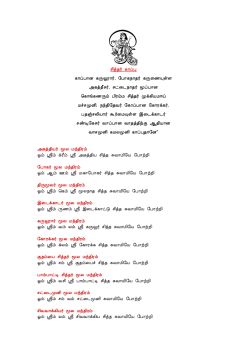 சித்தர் காப்பு
காப்பான கருவூரார், போகநாதர் கருணையுள்ள
அகத்தீசர், சட்டைநாதர் மூப்பான
கொங்கணரும் பிரம்ம சித்தர் முக்கியமாய்
மச்சமுனி, நந்திதேவர் கோப்பான கோரக்கர்,
பதஞ்சலியார் கூர்மையுள்ள இடைக்காடர்
சண்டிகேசர் வாப்பான வாதத்திற்கு ஆதியான
வாசமுனி கமலமுனி காப்புதானே"
அகத்தியர் மூல மந்திரம்
ஓம் ஸ்ரீம் ஸ்ரீ அகத்திய சித்த சுவாமியே போற்றி
போகர் மூல மந்திரம்
ஓம் ஆம் ஊம் ஸ்ரீ மகாபோகர் சித்த சுவாமியே போற்றி
திருமூலர் மூல மந்திரம்
ஓம் ஸ்ரீம் கெம் ஸ்ரீ மூலநாத சித்த சுவாமியே போற்றி
இடைக்காடர் மூல மந்திரம்
ஓம் ஸ்ரீம் ஸ்ரீ இடைக்காட்டு சித்த சுவாமியே போற்றி
கருவூரார் மூல மந்திரம்
ஓம் ஸ்ரீம் லம் ஸ்ரீ கருவூர் சித்த சுவாமியே போற்றி
கோரக்கர் மூல மந்திரம்
ஓம் ஸ்ரீம் ஸ்ரீ கோரக்க சித்த சுவாமியே போற்றி
குதம்பை சித்தர் மூல மந்திரம்
ஓம் ஸ்ரீம் சம் ஸ்ரீ குதம்பைச் சித்த சுவாமியே போற்றி
பாம்பாட்டி சித்தர் மூல மந்திரம்
ஓம் ஸ்ரீம் வசி ஸ்ரீ பாம்பாட்டி சித்த சுவாமியே போற்றி
சட்டைமுனி மூல மந்திரம்
ஓம் ஸ்ரீம் சம் வம் ஸ்ரீ சட்டைமுனி சித்த சுவாமியே போற்றி
சிவவாக்கியர் மூல மந்திரம்
ஓம் ஸ்ரீம் வம் ஸ்ரீ சிவவாக்கிய சித்த சுவாமியே போற்றி